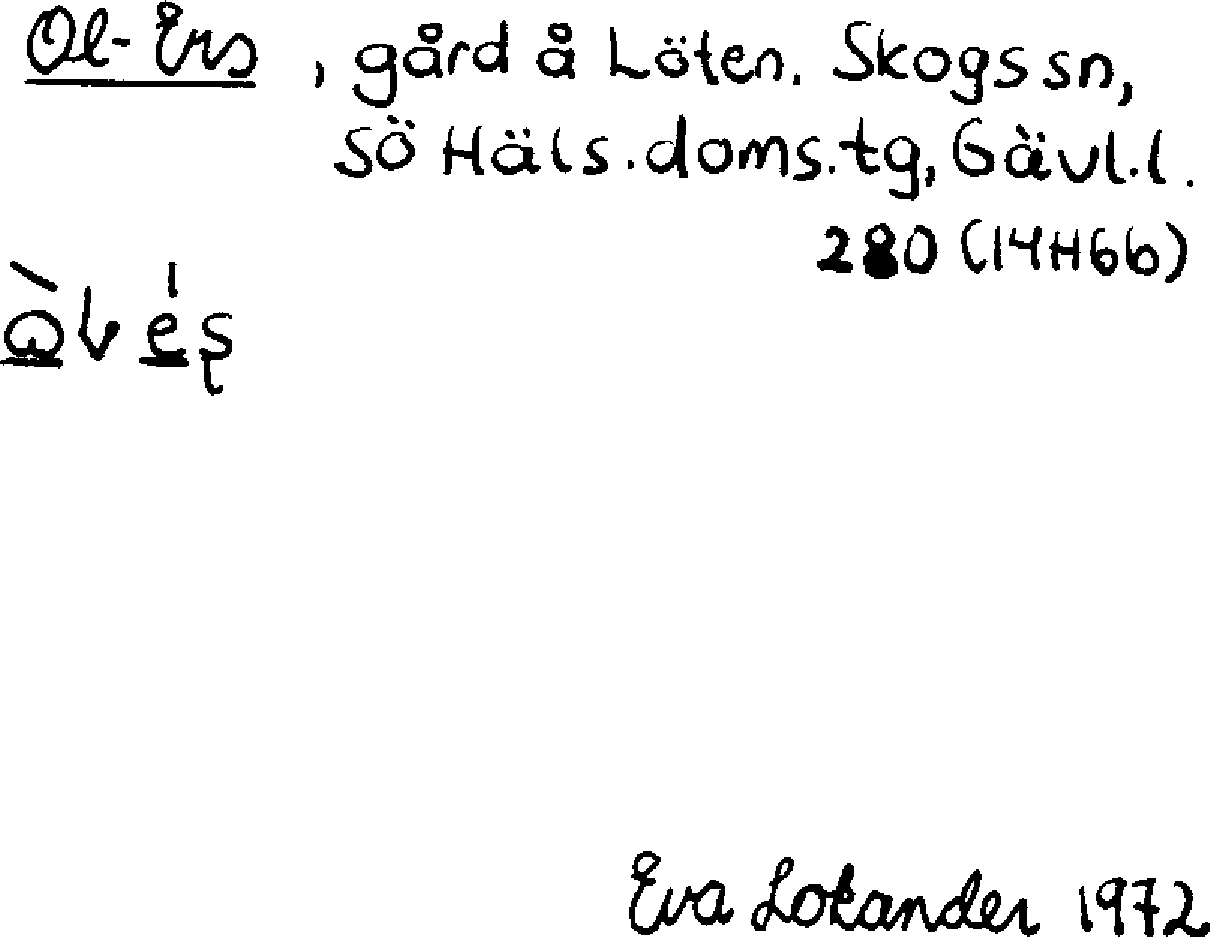 Ol-Ers, gård å Löten. Skogs sn,
Sö Häls.doms.tg, Gävl.l.
280 (14H6b)
Eva Lokander 1972